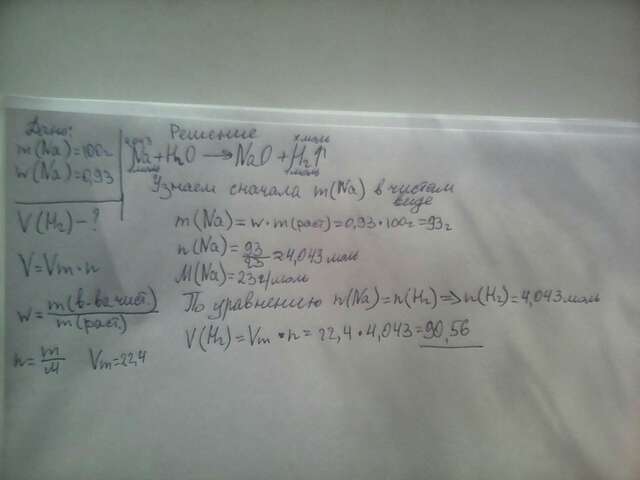 Дано:
m(Na)=100г
w(Na)=0,93
V(H₂)-?
V=Vm·n
w=m(в-ва чист.)/m(раст.)
n=m/M Vm=22,4
Решение
х моль
Na+H₂O→NaO+H₂↑
1моль 1моль
Узнаем сначала m(Na) в чистом
виде
m(Na)=w·m(раст)=0,93·100г=93г
n(Na)=93/23=4,043моль
M(Na)=23г/моль
По уравнению n(Na)=n(H₂)=>n(H₂)=4,043моль
V(H₂)=Vm·n=22,4·4,043=90,56